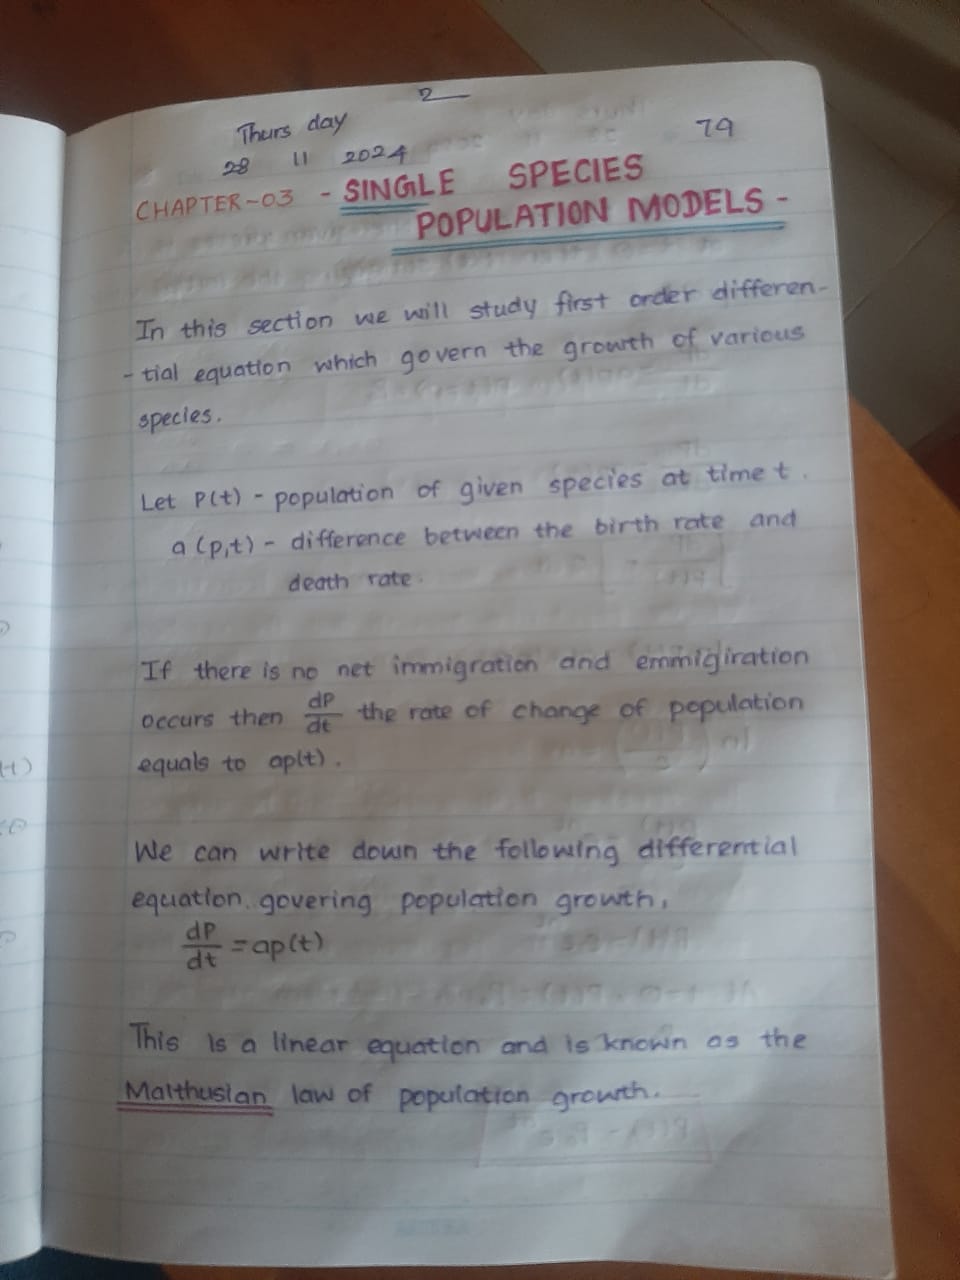 2
Thurs day
79
28 11 2024
CHAPTER-03 - SINGLE SPECIES
POPULATION MODELS -
In this section we will study first order differen-
- tial equation which govern the growth of various
species.
Let P(t) - population of given species at time t.
a (p,t) - difference between the birth rate and
death rate.
If there is no net immigration and emmigiration
occurs then dP/dt the rate of change of population
equals to ap(t).
We can write down the following differential
equation. govering population growth,
dP/dt = ap(t)
This is a linear equation and is known as the
Malthusian law of population growth.